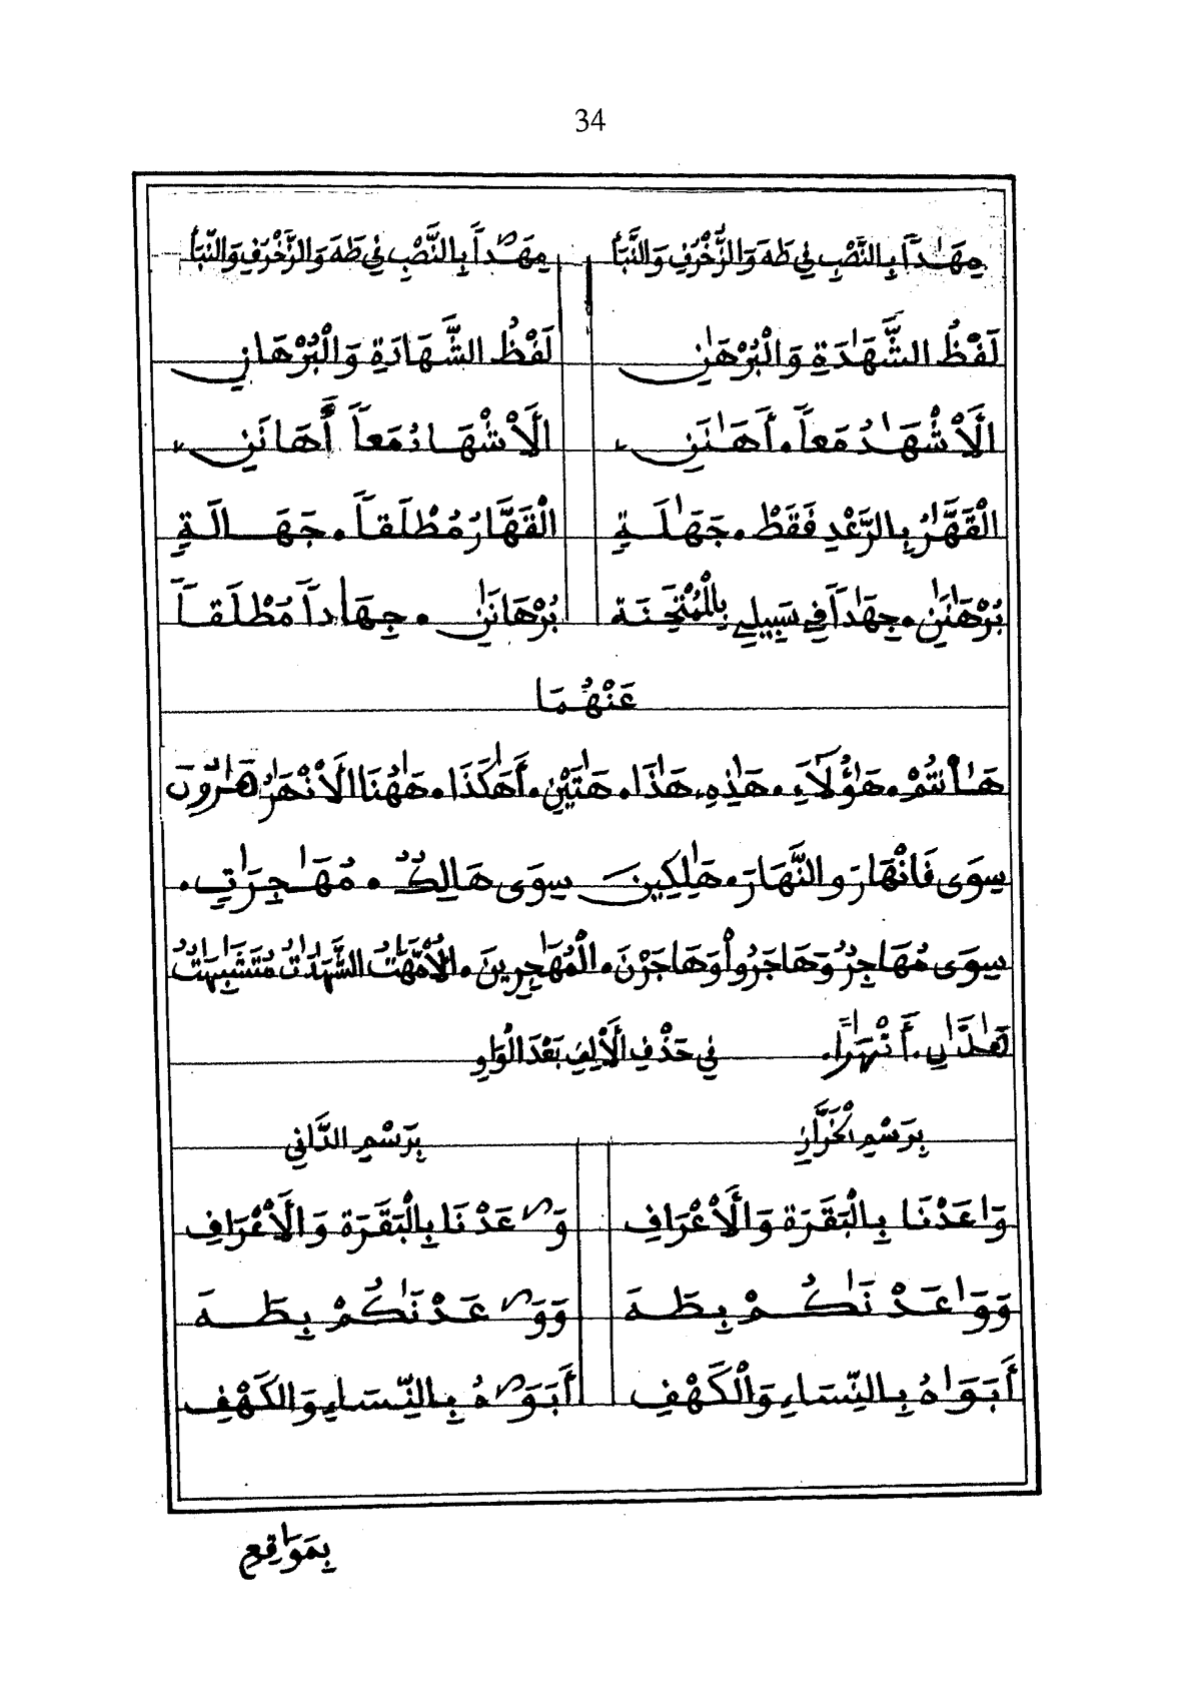 34
مِهَٰداً بِالنَّصْبِ فِي طَهَ وَالزُّخْرُفِ وَالنَّبَأ
مِهَٰداً بِالنَّصْبِ فِي طَهَ وَالزُّخْرُفِ وَالنَّبَأ
لَفْظُ الشَّهَٰدَةِ وَالْبُرْهَٰنِ
لَفْظُ الشَّهَادَةِ وَالْبُرْهَانِ
الَاشْهَٰدُ مَعاً . أَهَٰنَنِ
الَاشْهَادُ مَعاً أَهَانَنِ
الْقَهَّٰرُ بِالرَّعْدِ فَقَطْ . جَهَٰلَةٍ
الْقَهَّارُ مُطْلَقاً . جَهَالَةٍ
بُرْهَٰنَٰنِ . جِهَٰداً فِي سَبِيلِي بِالْمُمْتَحِنَة
بُرْهَانَٰنِ . جِهَاداً مُطْلَقاً
عَنْهُمَا
هَٰأَنتُمْ . هَٰؤُلَآءِ . هَٰذِهِ . هَٰذَا . هَٰتَيْنِ . أَهَٰكَذَا . هَٰهُنَا الَانْهَٰرُ هَٰرُونَ
سِوَى فَانْهَارَ والنَّهَارَ . هَٰلِكِينَ سِوَى هَالِكٌ . مُهَٰجِرَٰتٍ .
سِوَى مُهَاجِرٌ وَهَاجَرُواْ وَهَاجَرْنَ . الْمُهَٰجِرِينَ . الُامَّهَٰتُ الشَّهَٰدَٰتُ مُتَشَٰبِهَٰتٌ
هَٰذَٰنِ . أَنْهَٰراً . فِي حَذْفِ الَالِفِ بَعْدَ الْوَاوِ
بِرَسْمِ الْخَرَّازِ
بِرَسْمِ الدَّانِي
وَاعَدْنَا بِالْبَقَرَة وَالَاعْرَافِ
وَٰعَدْنَا بِالْبَقَرَة وَالَاعْرَافِ
وَوَاعَدْنَٰكُمْ بِطَهَ
وَوَٰعَدْنَٰكُمْ بِطَهَ
أَبَوَاهُ بِالنِّسَاءِ وَالْكَهْفِ
أَبَوَٰهُ بِالنِّسَاءِ وَالكَهْفِ
بِمَوَٰقِعِ